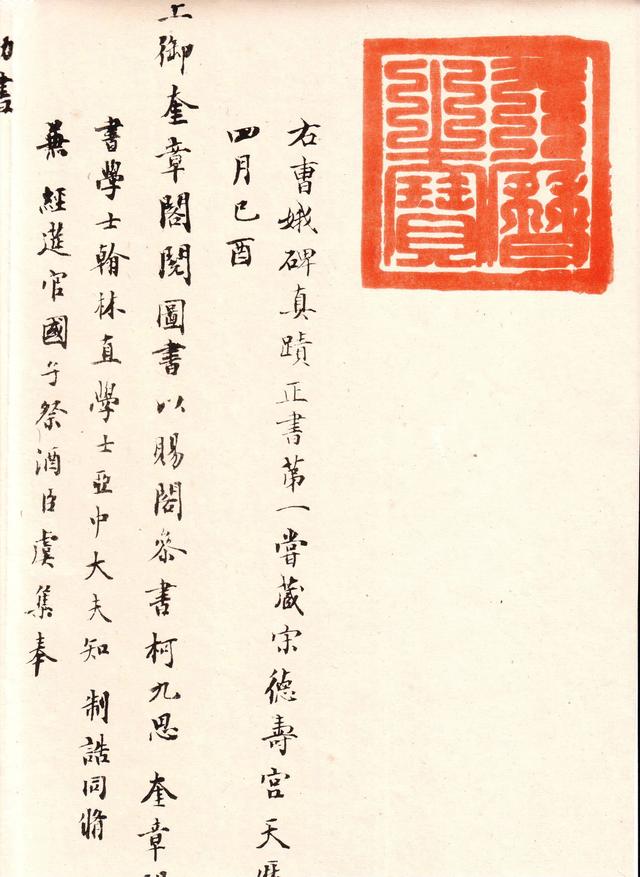 天曆之寶
右曹娥碑真蹟正書第一嘗藏宋德壽宮天曆
四月已酉
上御奎章閣閱圖書以賜閣參書柯九思 奎章閣
書學士翰林直學士亞中大夫知 制誥同脩
兼 經筵官國子祭酒臣虞集奉
勑書